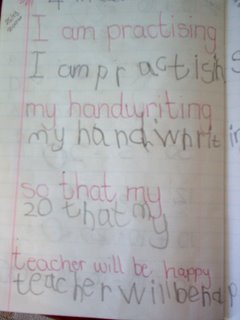 I am practising
I am practish
my handwriting
my handwrit
so that my
20 that my
teacher will be happy
teacher will be hap